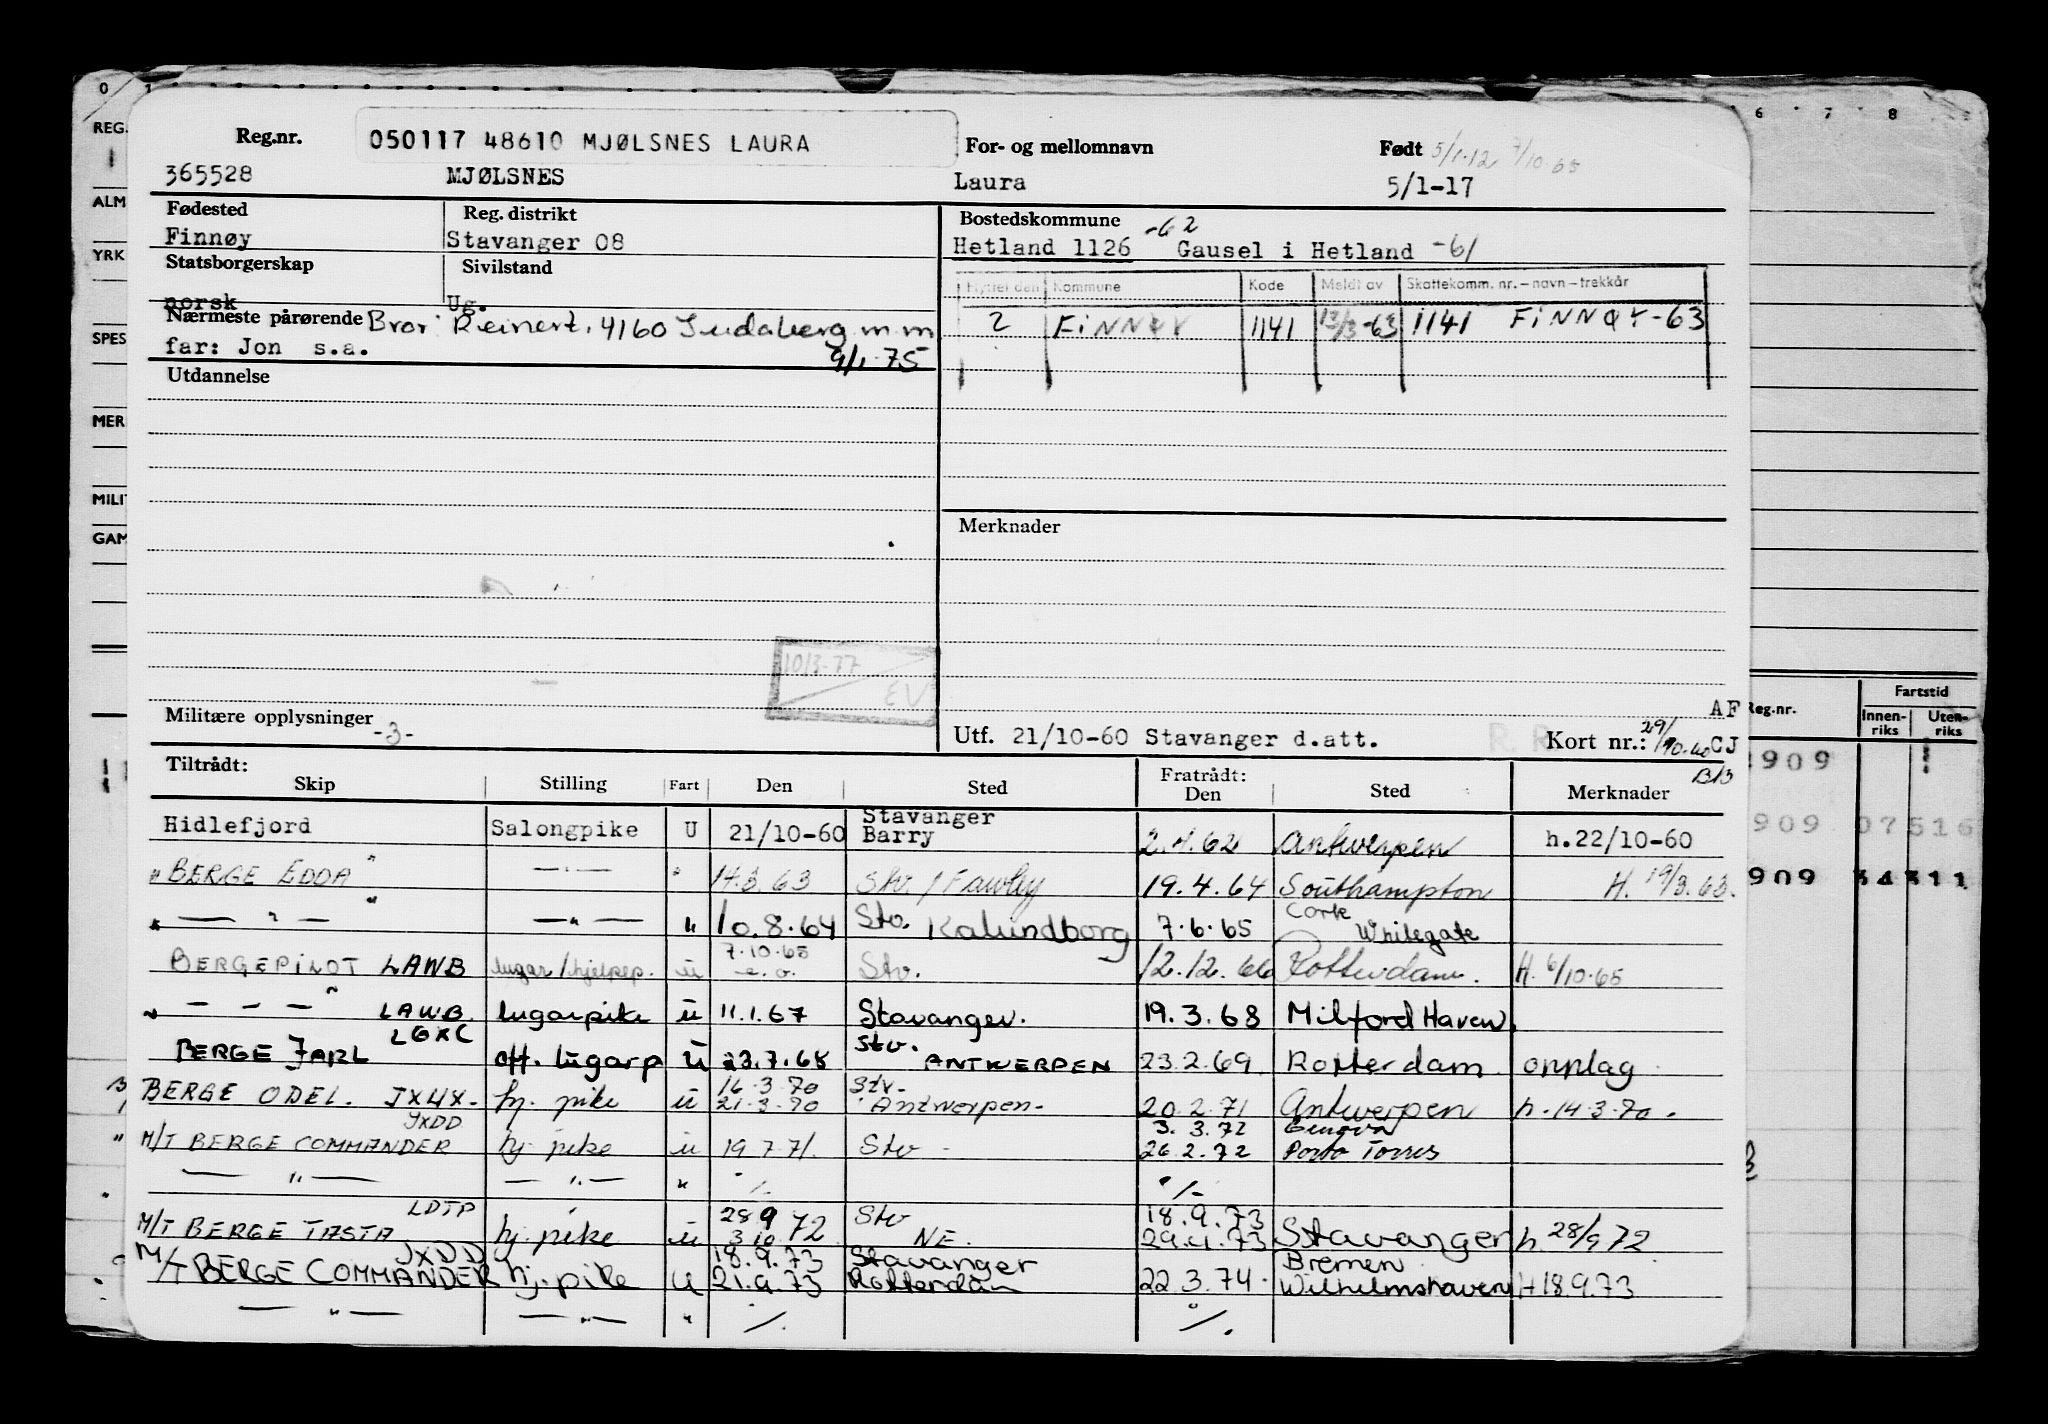 Reg.nr. 050117 48610 MJØLSNES LAURA For- og mellomnavn Født 5/1-12 7/10-65
365528 MJØLSNES Laura 5/1-17
Fødested Reg. distrikt Bostedskommune -62
Finnøy Stavanger 08 Hetland 1126 Gausel i Hetland -61
Statsborgerskap Sivilstand
norsk Ug.
Flyttet den Kommune Kode Meldt av Skattekomm. nr. – navn – trekkår
2 FINNØY 1141 12/3-63 1141 FINNØY-63
Nærmeste pårørende Bror: Reinert, 4160 Judaberg m m
far: Jon s.a. 9/1-75
Utdannelse
Merknader
10/3-77
EV
Militære opplysninger
-3-
AF
Utf. 21/10-60 Stavanger d.att. Kort nr.: 29/10-60 CJ
B/3
Tiltrådt: Fratrådt:
Skip Stilling Fart Den Sted Den Sted Merknader
Hidlefjord Salongpike U 21/10-60 Stavanger Barry 2.4.62 Antwerpen h.22/10-60
" BERGE EDDA " — " — " 14.3.63 Stv. / Fawley 19.4.64 Southampton H. 19/3.63.
" — " — " — " — " 10.8.64 Stv. Kalundborg 7.6.65 Cork Whitegate
BERGEPILOT LAWB lugar/hjelpep. u 7.10.65 Stv. 12.12.66 Rotterdam. H. 6/10-65
" — — — " LAWB lugarpike u 11.1.67 Stavanger. 19.3.68 Milford Haven.
BERGE JARL LGXC off. lugarp u 23.7.68 Stv. ANTWERPEN 23.2.69 Rotterdam opplag
BERGE ODEL. JXUX. hj. pike u 16.3.70 21.3.70 Stv. Antwerpen. 20.2.71 Antwerpen h. 14.3.70.
M/T BERGE COMMANDER JXDD hj pike u 19.7.71. Stv 3.3.72 26.2.72 Genova Porto Torres
— " — — " — " -/- -/-
M/T BERGE TASTA LDTP hj. pike u 28 9 72 3 10 Stv NE. 18.9.73 Stavanger h. 28/9 72
M/T BERGE COMMANDER JXDD hj. pike u 18.9.73 21.9.73 Stavanger Rotterdam 22.3.74 Bremen Wilhelmshaven H 18.9.73
— " — — " — " -/- -/-
REG.
ALM
YRK
SPES
MER
MILIT
GAM
0 1
6 7 8
Fartstid
Reg.nr. Innen-riks Uten-riks
909
909 07516
909 34311